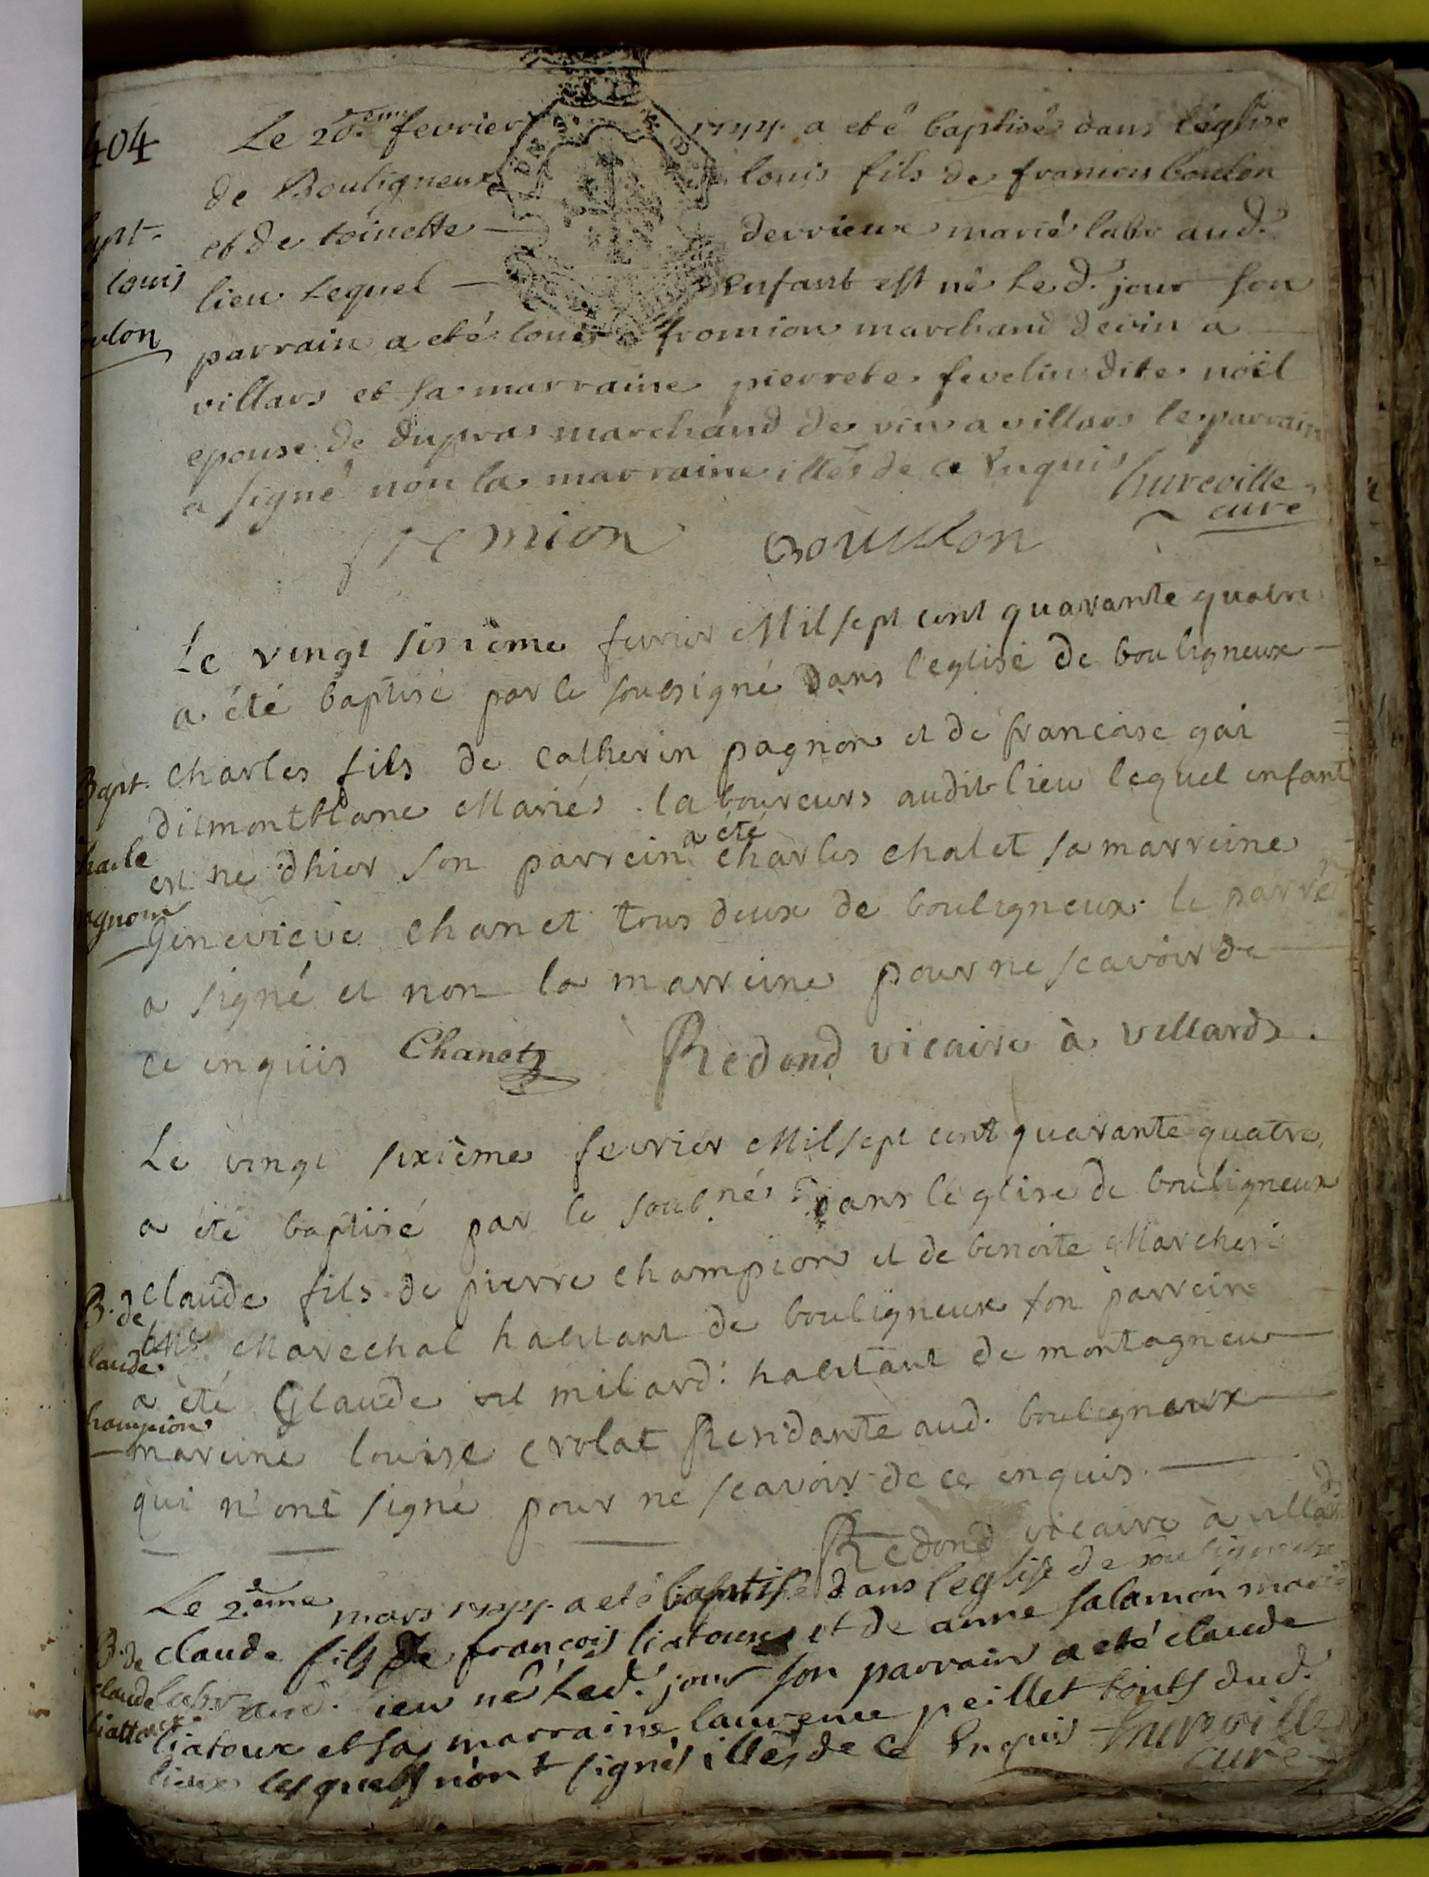 404
Le 20.eme fevrier 1744. a eté baptisé dans l'église
de Bouligneux louis fils de francois bouton
et de toinette derrieux mariés labr aud.
lieu lequel enfant est né led. jour son
parrain a eté louis fromion marchand de vin a
villars et sa marraine pierrete fevelin dite noël
epouse de dupras marchand de vin a villars le parrain
a signé non la marraine illés de ce Enquis hureville
curé
fremion
Le vingt sixième fevrier Mil sept cent quarante quatre
a été baptisé par le soubsigné dans l'eglise de bouligneux
Bapt. Charles fils de Catherin pagnon et de francoise gai
dit montblanc Mariés laboureurs audit lieu lequel enfant
est né dhier son parrein a été charles chalet sa marreine
Genevieve chanet tous deux de bouligneux. le parre
a signé et non la marreine pour ne scavoir de
ce enquis Chanet Redond vicaire à villards.
Le vingt sixième fevrier Mil sept cent quarante quatre
a été baptisé par le soub.né dans leglise de bouligneux
B. de claude fils de pierre champion et de benoite
Marechal habitant de bouligneux son parrein
a été Glaude milard habitant de montagneu
mareine louise crolat Residante aud. bouligneux
qui n'ont signé pour ne scavoir de ce enquis.
Redond vicaire à villards
Le 2.eme mars 1744. a eté baptisé dans leglise de bouligneux
B. de claude fils de francois liatoux et de anne salamon mariés
claude labr aud. lieu né led. jour son parrain a eté claude
liatoux et sa marraine laurence peillet touts dud.
lieux lesquels n'ont signés illés de ce Enquis hureville
curé